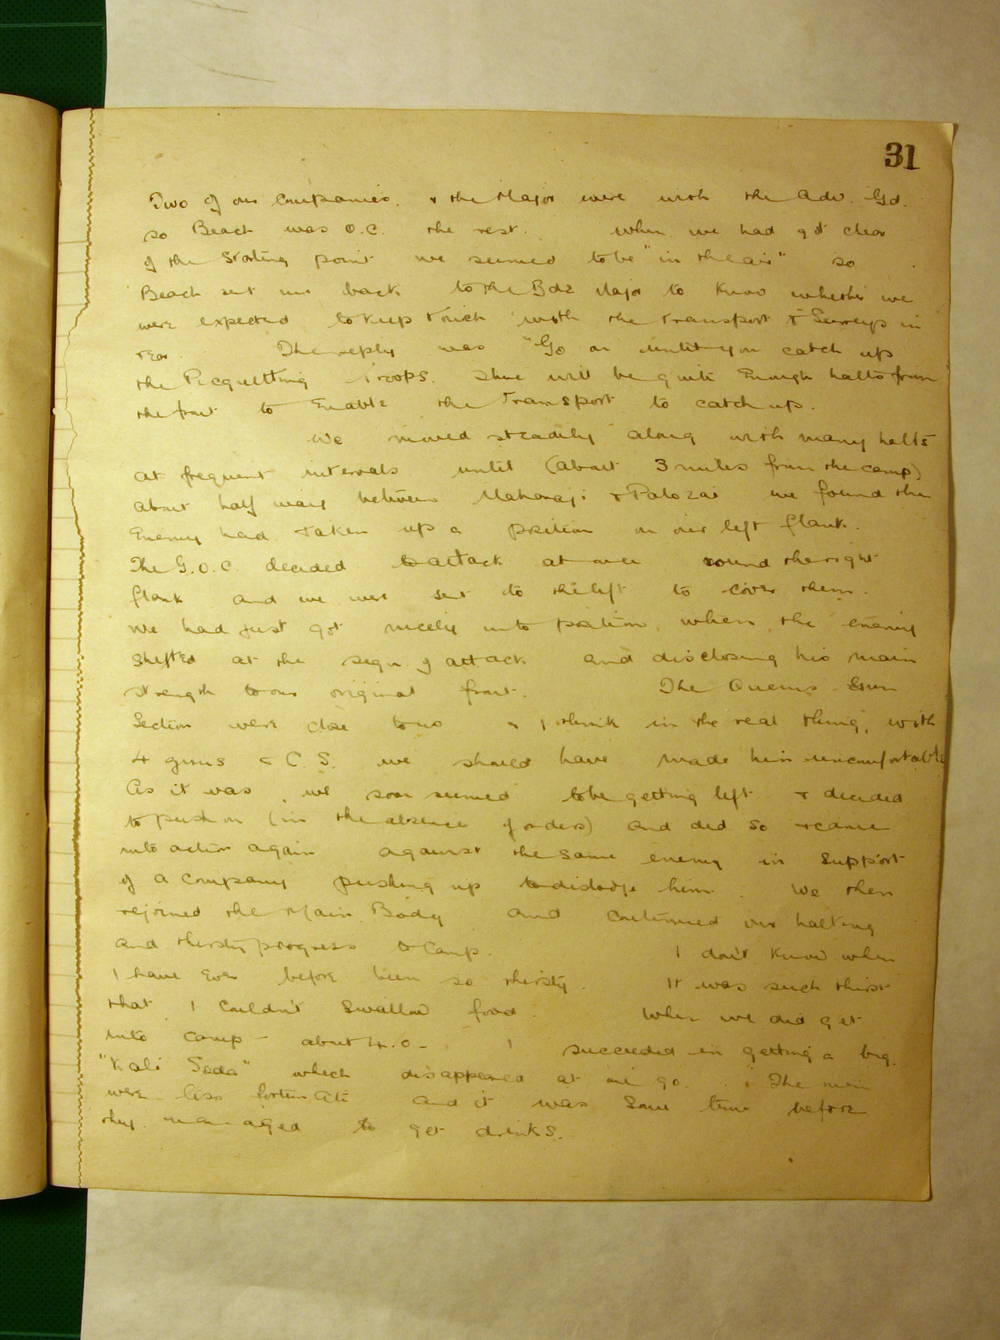 31
Two of our Companies. & the Major were with the Adv. Gd.
so Beach was O.C. the rest. When we had got clear
of the Starting point we seemed to be "in the air" so
Beach sent me back to the Bde Major to know whether we
were expected to keep touch with the transport & in
rear. The reply was "Go on until you catch up
the Picquetting Troops. There will be quite Enough halts from
the front to Enable the Transport to catch up.
We moved steadily along with many halts
at frequent intervals until (about 3 miles from the camp)
about half way between Maharaji & Palozai we found the
Enemy had taken up a position on our left flank.
The G.O.C. decided to attack at once round the right
flank and we were sent to the left to cover them.
We had just got nicely into position, when the enemy
shifted at the sign of attack and disclosing his main
strength to our original front. The Queens Gun
Section were close to us & I think in the real thing, with
4 guns & C.S. we should have made him uncomfortable
As it was, we soon seemed to be getting left & decided
to push on (in the absence of orders) and did so & came
into action again against the same enemy in support
of a Company pushing up to dislodge him. We then
rejoined the Main Body and continued our halting
and thirsty progress to Camp. I don't know when
I have Ever before been so thirsty. It was such thirst
that I couldn't swallow food. When we did get
into camp - about 4.0 - I succeeded in getting a big
"Kali Soda" which disappeared at one go. The men
were less fortunate and it was some time before
they managed to get drinks.